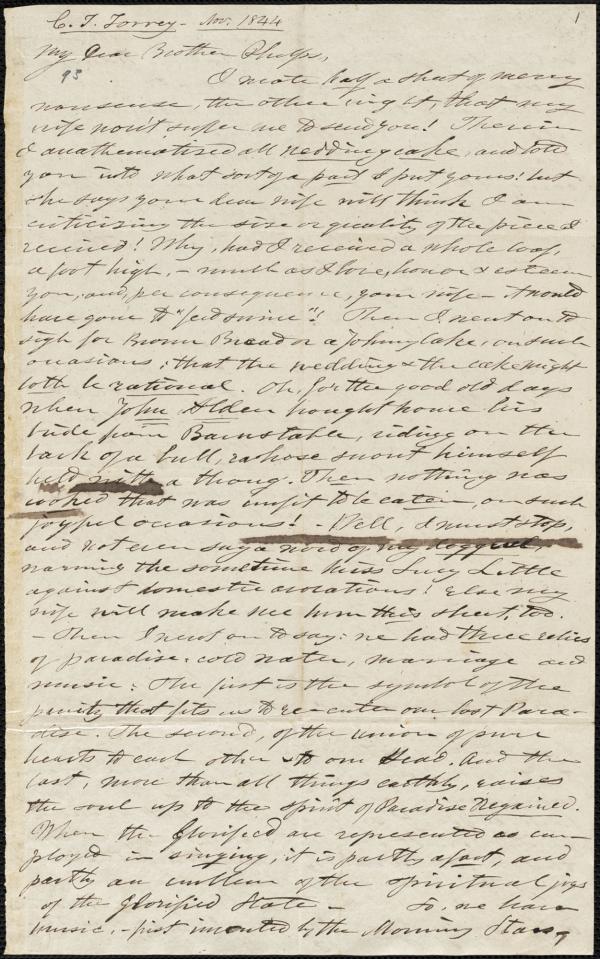 C. T. Torrey - Nov. 1844
1
My Dear Brother Phelps,
93
I wrote half a sheet of merry
nonsense, the other night, that my
wife won't suffer me to send you! Therein
I anathematised all wedding cake, and told
you into what sort of a part I put yours! but
she says your dear wife will think I am
criticising the size or quality of the piece I
received! Why, had I received a whole loaf,
a foot high, - much as I love, honor & esteem
you, and, per consequence, your wife - it would
have gone to "feed swine"! Then I went on to
sigh for Brown Bread or a Johnny Cake, on such
occasions; that the wedding & the cake might
both be rational. Oh, for the good old days
when John Alden brought home his
bride from Barnstable, riding on the
back of a bull, whose snout himself
held with a thong. Then nothing was
cooked that was unfit to be eaten, on such
joyful occasions! - Well, I must stop,
and not even say a word of my
warning the sometime Miss Lucy Little
against domestic avocations! Else my
wife will make me burn this sheet, too.
- Then I went on to say: we had three relics
of paradise: cold water, marriage and
music: The first is the symbol of the
purity that fits us to re-enter our lost Para-
dise. The second, of the union of pure
hearts to each other & to one Head. And the
last, more than all things earthly, raises
the soul up to the spirit of Paradise Regained.
When the Glorified are represented as em-
ployed in singing, it is partly a fact, and
partly an emblem of the spiritual joys
of the Glorified State - So, we have
music, - first invented by the Morning Stars,